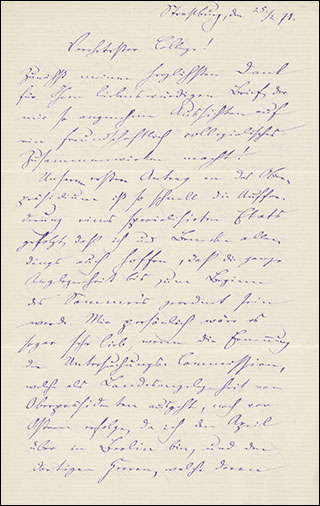 Strassburg, den 25/2 73.
Verehrtester College!
Zunächst meinen herzlichsten Dank
für Ihren liebenswürdigen Brief, der
mir so angenehme Aussichten auf
ein freundschaftlich collegialisches
Zusammenwirken macht!
Unserem ersten Antrag an das Ober-
präsidium ist so schnell die Auffor-
derung eines specialisirten Etats
gefolgt, daß ich und Benecke aller-
dings auch hoffen, daß die ganze
Angelegenheit bis zum Beginn
des Sommers geordnet sein
werde. Mir persönlich wäre es
sogar sehr lieb, wenn die Ernennung
der Untersuchungs Commission,
welche als Landesangelegenheit vom
Oberpräsidenten ausgeht, noch vor
Ostern erfolge, da ich den April
über in Berlin bin, und den
dortigen Herren, welche deren